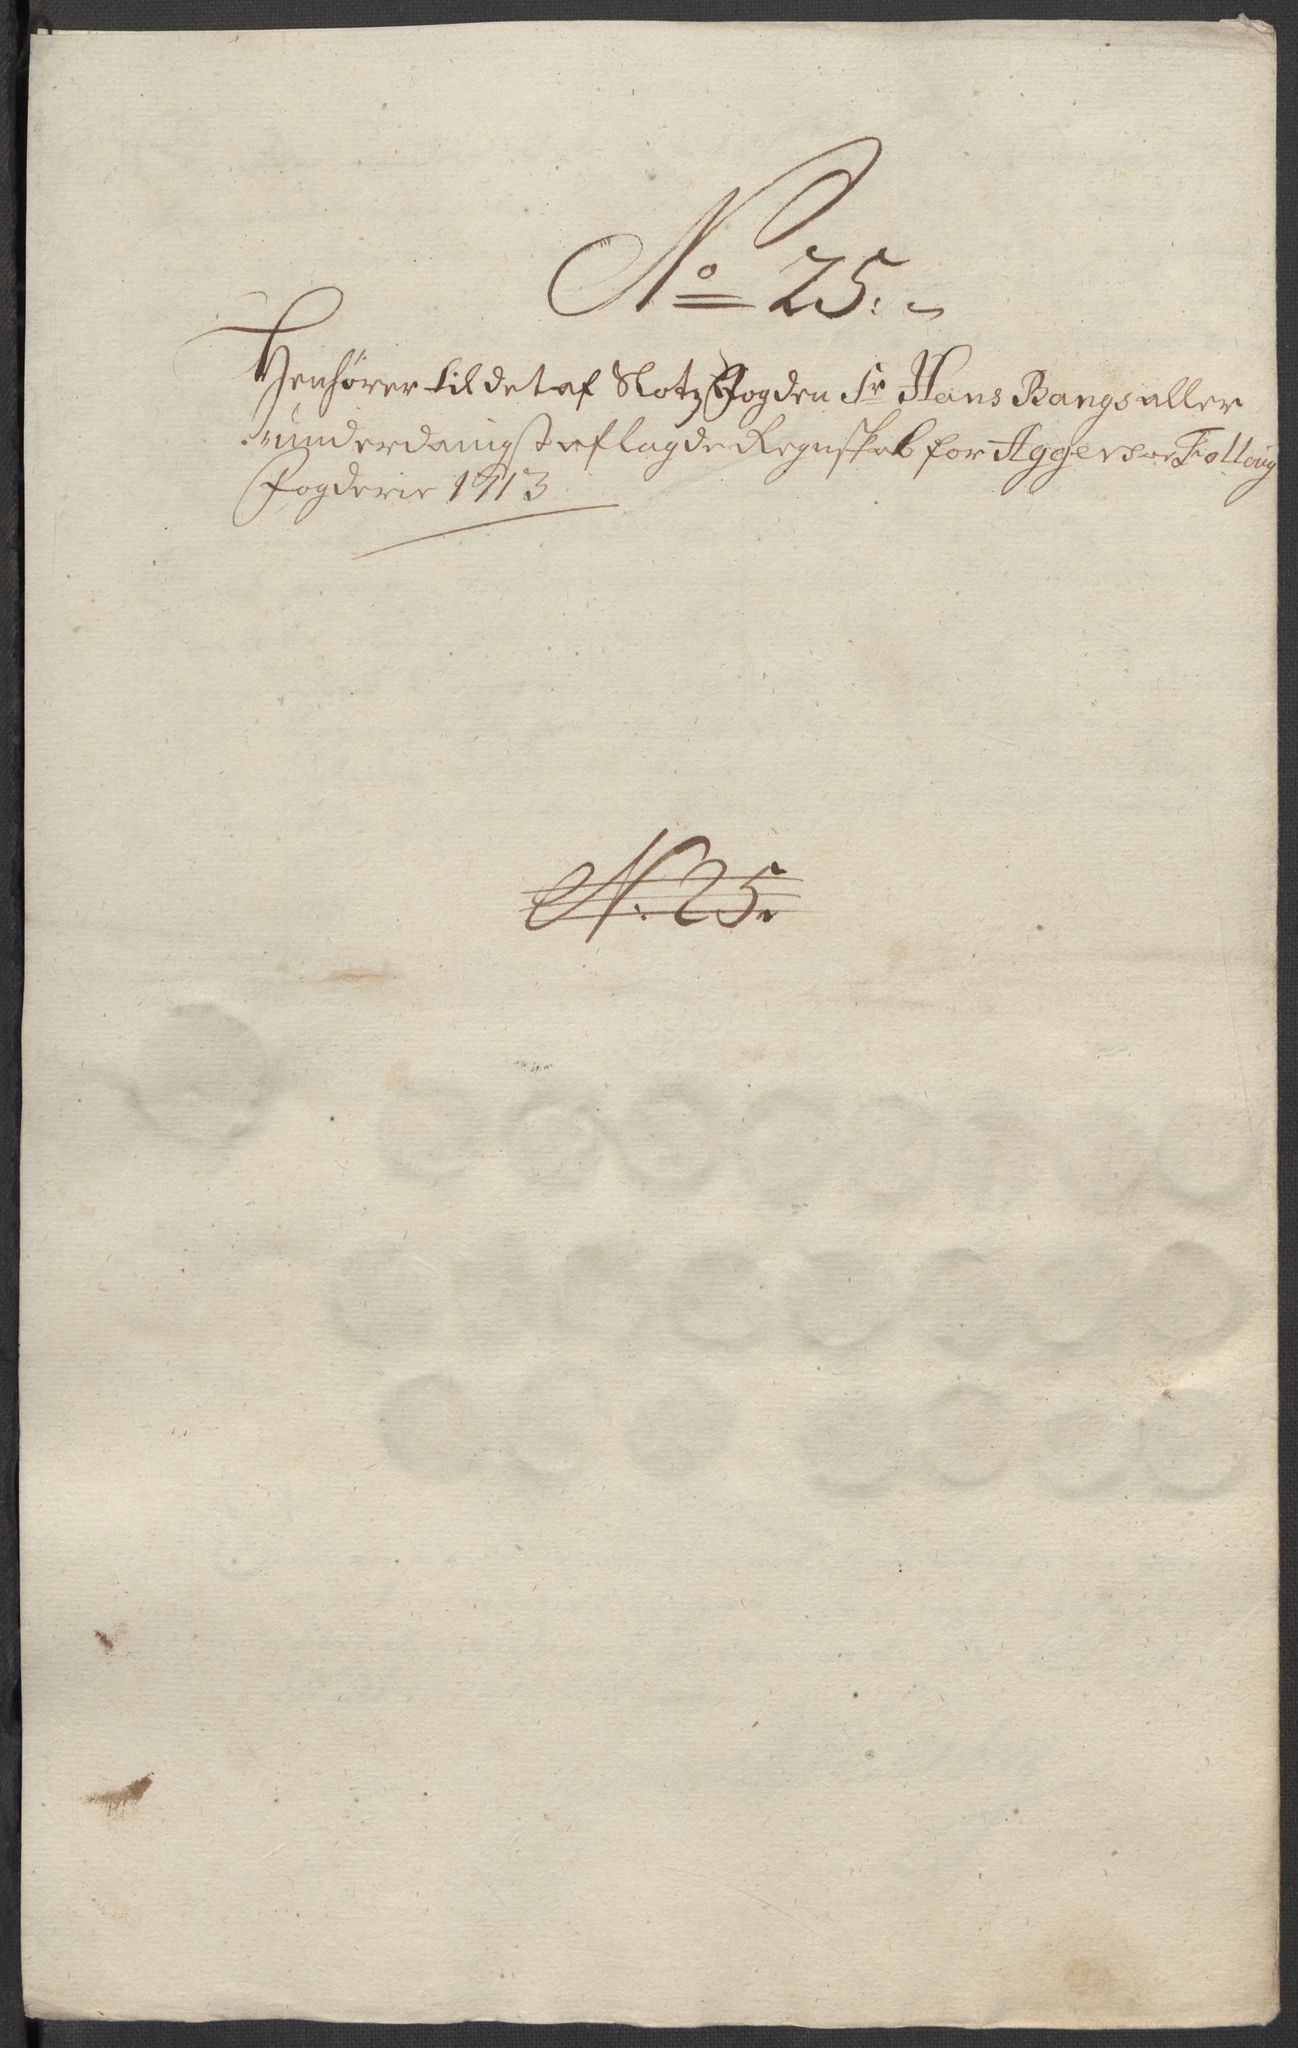 No 25.
Henhörer til det af Slotz Fogden Sr Hans Bangs aller
underdanigst aflagde Regnskab for Aggers oc Folloug
Fogderie 1713
N. 25.